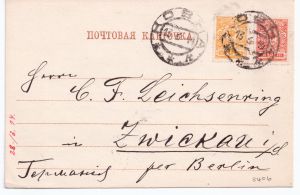 ПОЧТОВАЯ КАРТОЧКА.
Herrn
C. F. Leichsenring
Zwickau i/S.
Германія per Berlin
in
3406